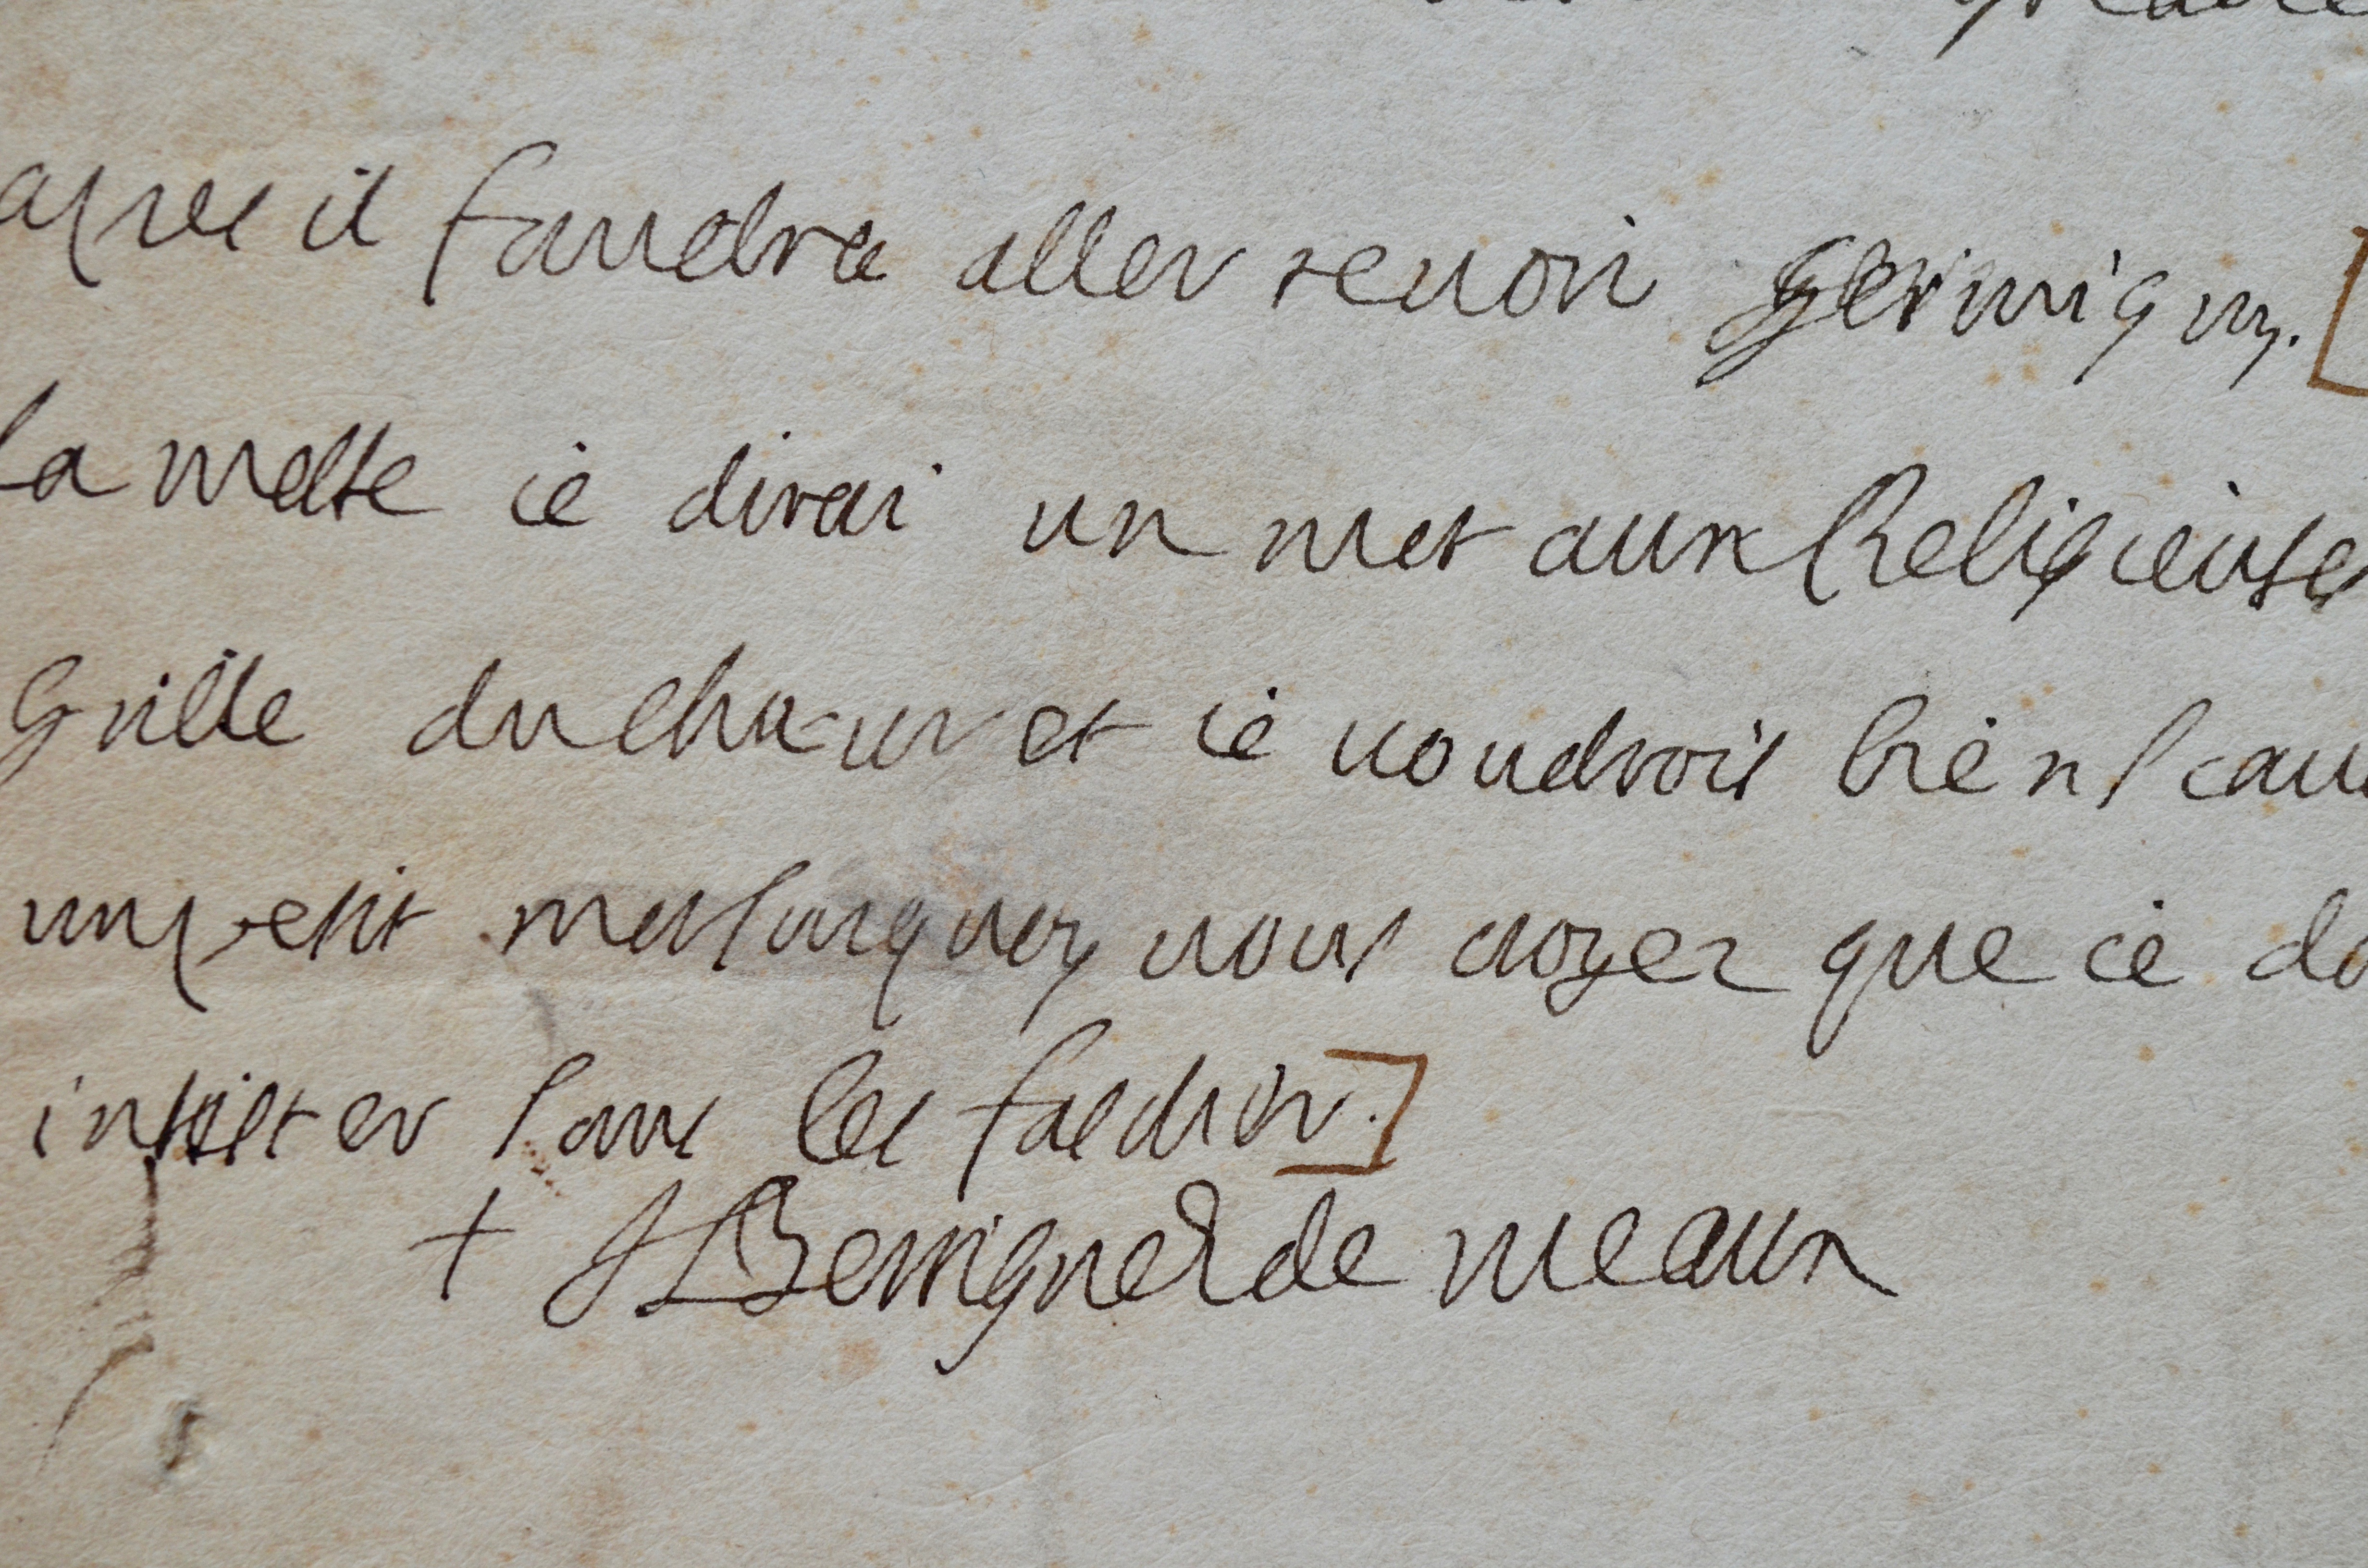 apres il faudra aller revoir Germigny.
la messe ie dirai un mot aux Religieuses
Grille du chœur et ie voudrois bien scau
un petit mot surquoy vous croyez que ie do
insister sans les fascher.
+ J Benigne E de Meaux